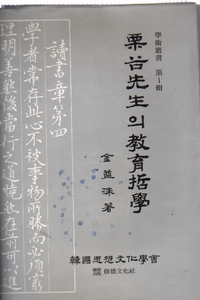 學術叢書 第1輯
栗谷先生의 教育哲學
金益洙 著
韓國思想文化學會
修德文化社
讀書章第四
學者常存此心不被事物所勝而必須窮
理明善然後當行之道曉然在前可以進